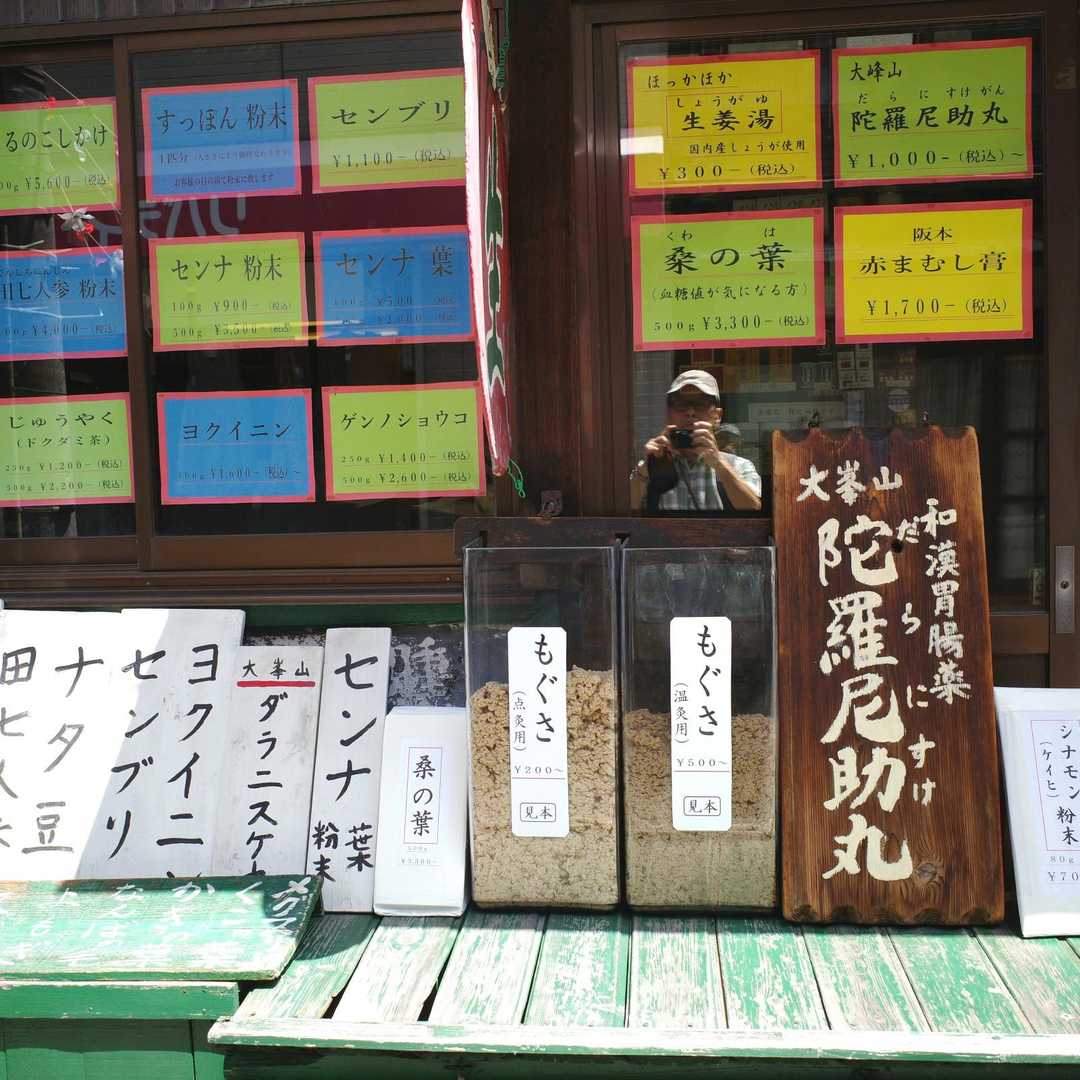 るのこしかけ
00g ¥5,600-(税込)
すっぽん 粉末
1匹分
お客様の目の前で粉末に致します
センブリ
¥1,100-(税込)
田七人参 粉末
00g ¥4,000-(税込)
センナ 粉末
100g ¥900-(税込)
500g ¥3,500-(税込)
センナ 葉
¥2,000-(税込)
じゅうやく
(ドクダミ茶)
250g ¥1,200-(税込)
500g ¥2,200-(税込)
ヨクイニン
¥1,600-(税込)
ゲンノショウコ
250g ¥1,400-(税込)
500g ¥2,600-(税込)
ほっかほか
しょうがゆ
生姜湯
国内産しょうが使用
¥300-(税込)
大峰山
だらにすけがん
陀羅尼助丸
¥1,000-(税込)~
くわ は
桑の葉
(血糖値が気になる方)
500g ¥3,300-(税込)
阪本
赤まむし膏
¥1,700-(税込)
田七人
ナタ豆
センブリ
ヨクイニン
大峯山
ダラニスケ
センナ 葉
粉末
桑の葉
500g
¥3,300-
もぐさ
(点灸用)
¥200~
見本
もぐさ
(温灸用)
¥500~
見本
和漢胃腸薬
大峯山
だらにすけ
陀羅尼助丸
シナモン 粉末
(ケイヒ)
80g
¥70